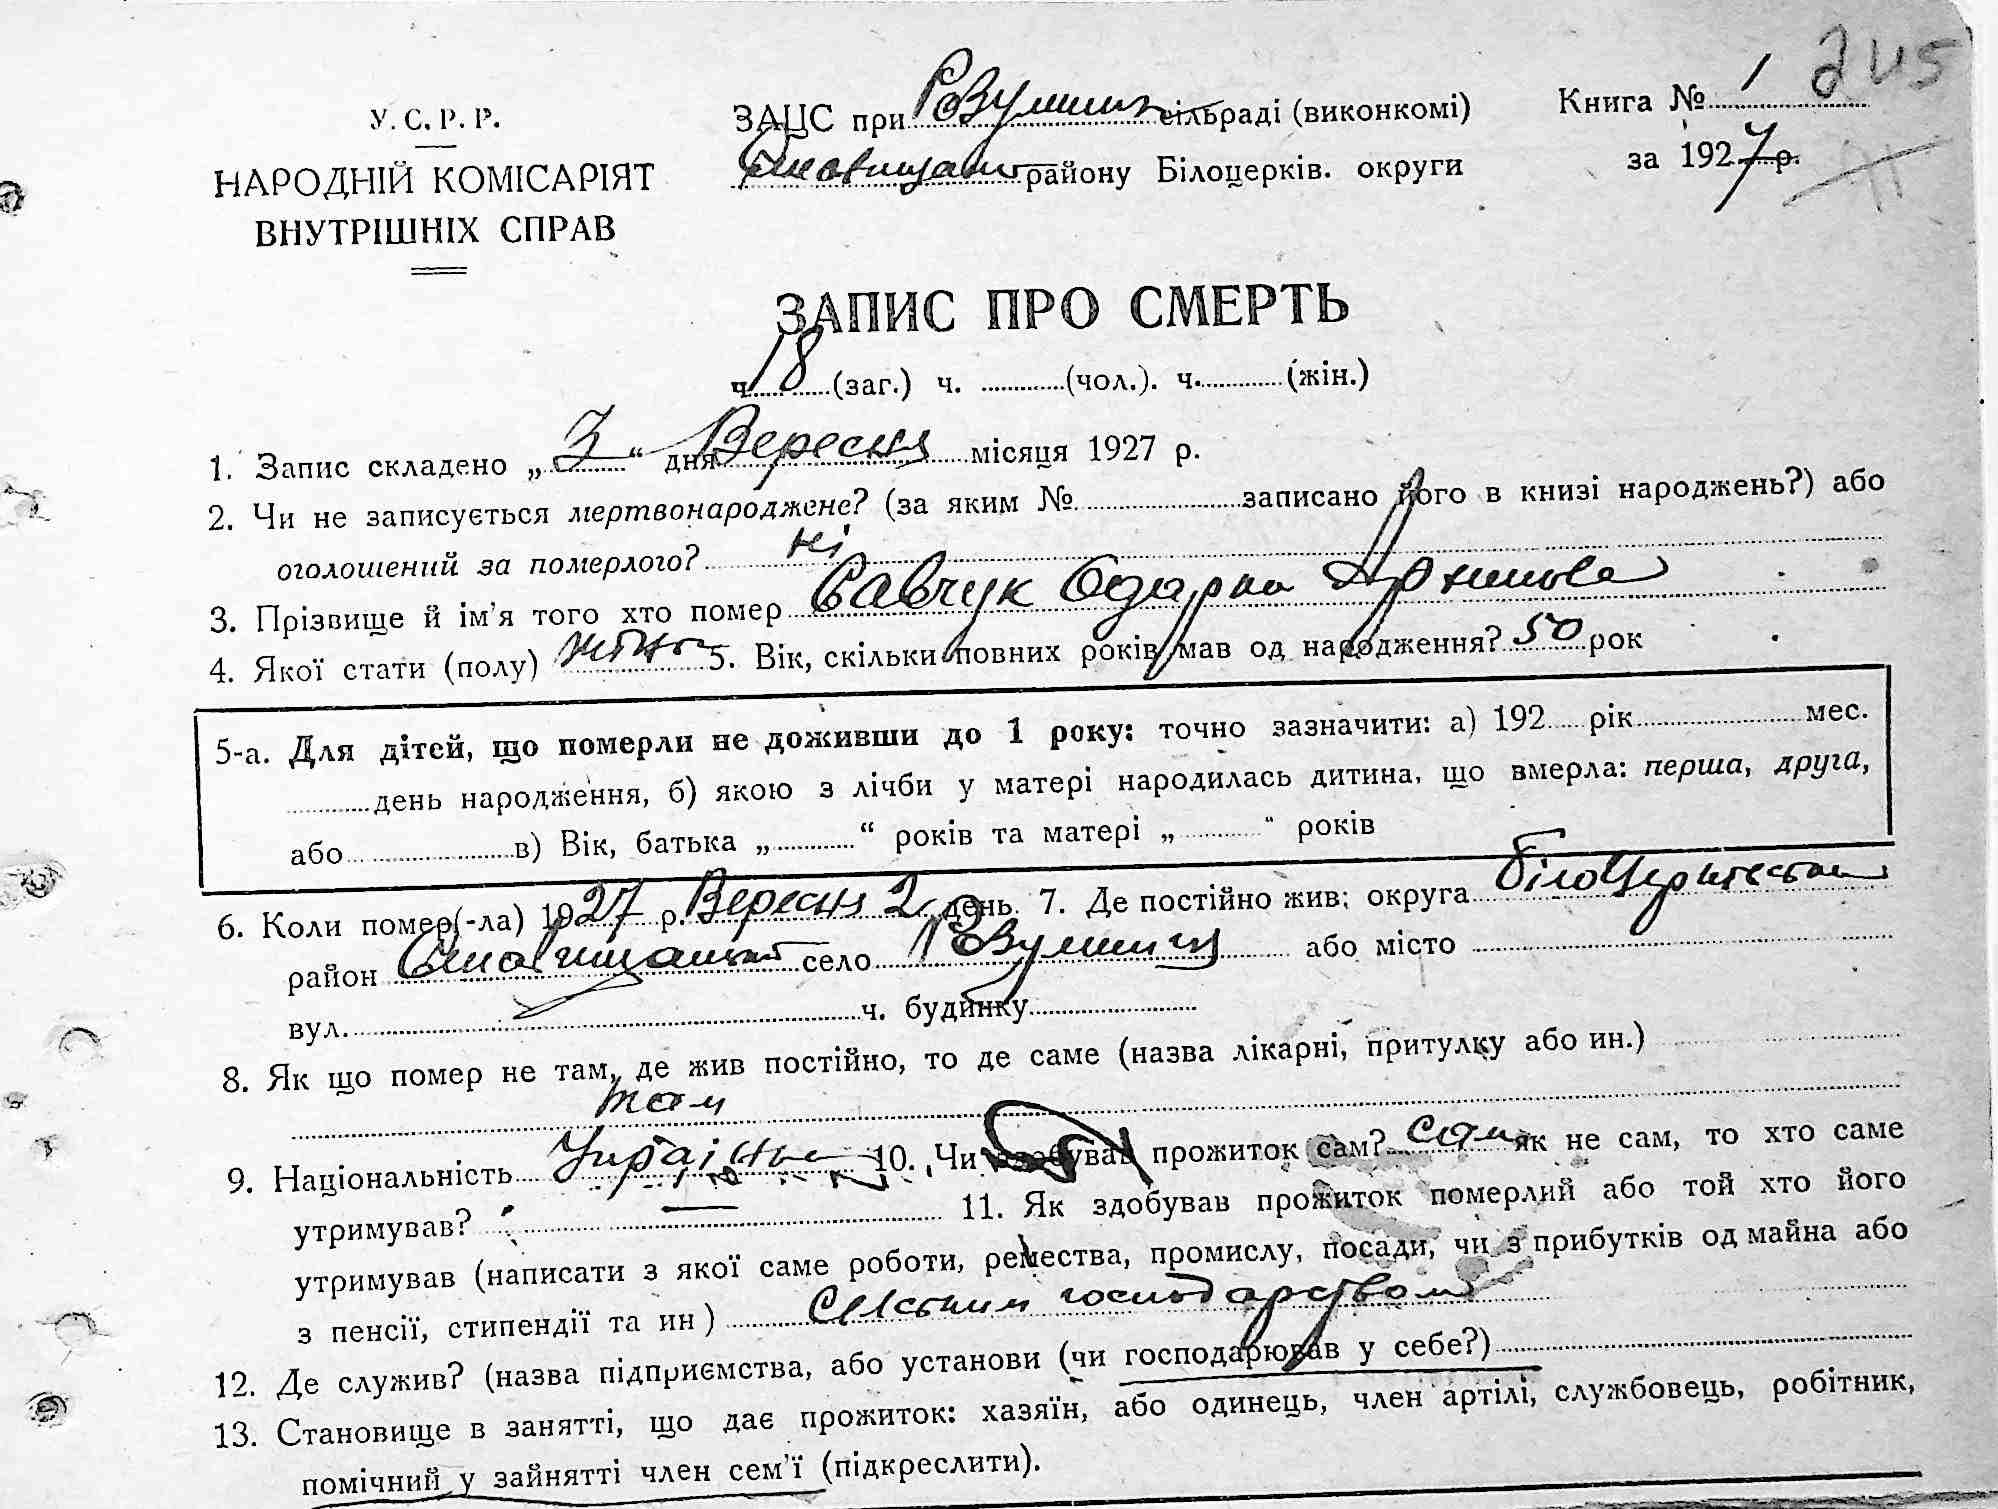 У. С. Р. Р.
НАРОДНІЙ КОМІСАРІЯТ
ВНУТРІШНІХ СПРАВ
ЗАЦС при Розумниц. сільраді (виконкомі)
Ставищан району Білоцерків. округи
Книга № 1 245
за 1927 р.
ЗАПИС ПРО СМЕРТЬ
ч. 18 (заг.) ч. (чол.). ч. (жін.)
1. Запис складено „ 3 “ дня Вересня місяця 1927 р.
2. Чи не записується мертвонароджене? (за яким № записано його в книзі народжень?) або
оголошений за померлого? ні
3. Прізвище й ім'я того хто помер Савчук Одарка
4. Якої стати (полу) жіноч 5. Вік, скільки повних років мав од народження? 50 рок
5-а. Для дітей, що померли не доживши до 1 року: точно зазначити: а) 192 рік мес.
день народження, б) якою з лічби у матері народилась дитина, що вмерла: перша, друга,
або в) Вік, батька „ “ років та матері „ “ років
6. Коли помер(-ла) 1927 р. Вересня 2 день. 7. Де постійно жив: округа Білоцерківська
район Ставищанський село Розумниця або місто
вул. ч. будинку
8. Як що помер не там, де жив постійно, то де саме (назва лікарні, притулку або ин.)
там
9. Національність Україн 10. Чи здобував прожиток сам? сам як не сам, то хто саме
утримував? — 11. Як здобував прожиток померлий або той хто його
утримував (написати з якої саме роботи, ремества, промислу, посади, чи з прибутків од майна або
з пенсії, стипендії та ин) Сільським господарством
12. Де служив? (назва підприємства, або установи (чи господарював у себе?)
13. Становище в занятті, що дає прожиток: хазяїн, або одинець, член артілі, службовець, робітник,
помічний у зайнятті член сем'ї (підкреслити).